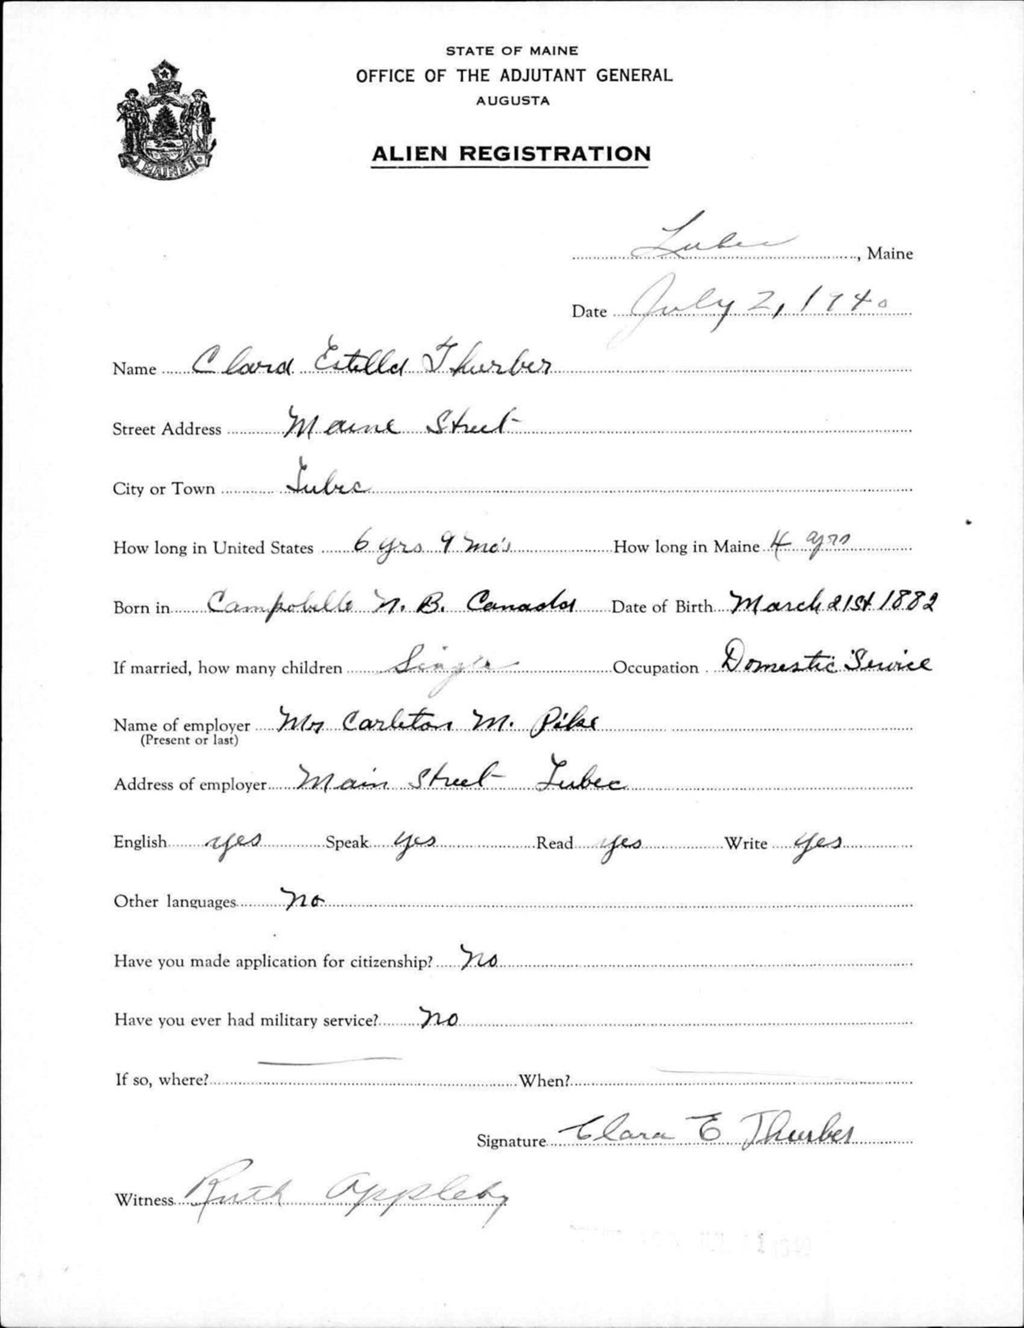 STATE OF MAINE
OFFICE OF THE ADJUTANT GENERAL
AUGUSTA
ALIEN REGISTRATION
MAINE
Lubec, Maine
Date July 2, 1940
Name Clara Estella Thurber
Street Address Maine Street
City or Town Lubec
How long in United States 6 yrs 9 mo's How long in Maine 4 yrs
Born in Campobello N. B. Canada Date of Birth March 21st 1882
If married, how many children Single Occupation Domestic Service
Name of employer Mrs Carleton M. Pike
(Present or last)
Address of employer Main Street Lubec
English yes Speak yes Read yes Write yes
Other languages no
Have you made application for citizenship? no
Have you ever had military service? no
If so, where? When?
Signature Clara E Thurber
Witness Ruth Appleby